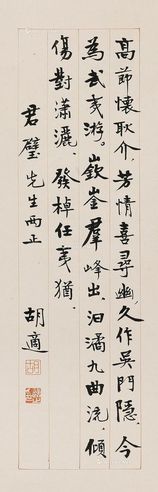 高節懷耿介、芳情喜尋幽、久作吳門隱、今
為武夷游。嶔崟羣峰出、汩潏九曲流、傾
觴對瀟灑、發棹任夷猶、
君璧先生兩正
胡適